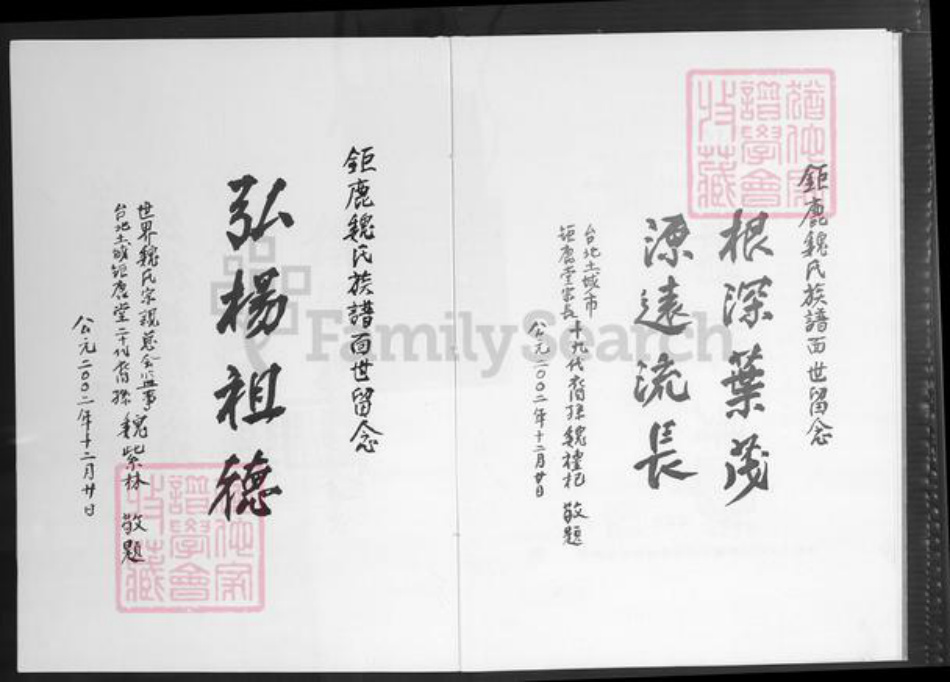 鉅鹿魏氏族譜面世留念
根深葉茂
源遠流長
台北土城市
鉅鹿堂宗長十九代裔孫魏樁杞 敬題
公元二00二年十二月廿日
鉅鹿魏氏族譜面世留念
弘楊祖德
世界魏氏宗親總会监事
台北土城鉅鹿堂二十代裔孫 魏紫林 敬題
公元二00二年十二月廿日
譜學會
收藏
譜學會
收藏
FamilySearch